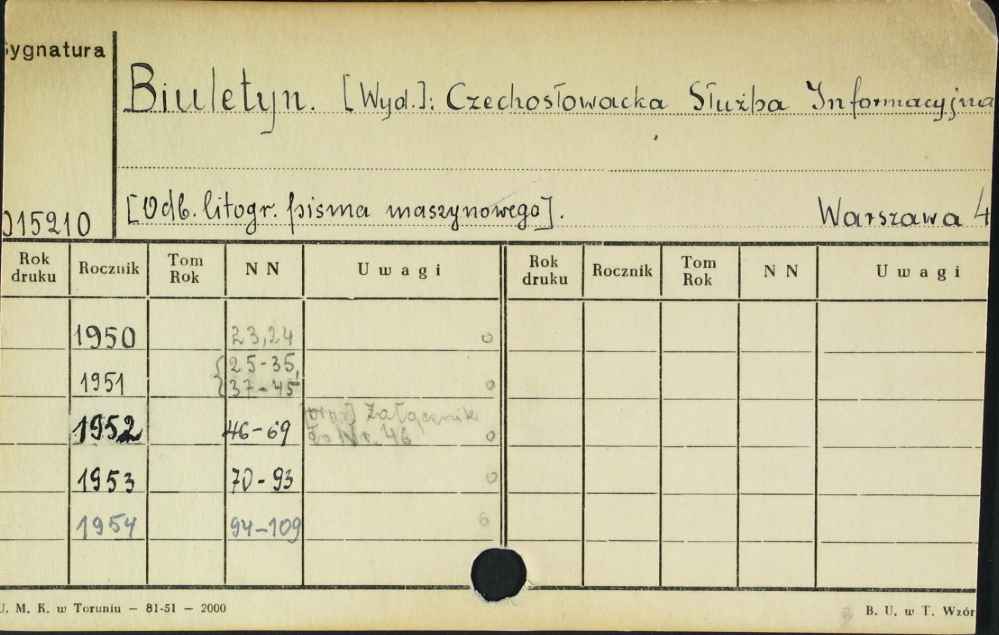 Sygnatura
Biuletyn. [Wyd.]: Czechosłowacka Służba Informacyjna
[Odb. litogr. pisma maszynowego].
Warszawa 4
015210
Rok druku Rocznik Tom Rok NN Uwagi Rok druku Rocznik Tom Rok NN Uwagi
1950 23,24 0
1951 {25-35, 37-45 0
1952 46-69 [oraz] Załącznik do Nr. 46 0
1953 70-93 0
1954 94-109 0
U. M. K. w Toruniu — 81-51 — 2000
B. U. w T. Wzór